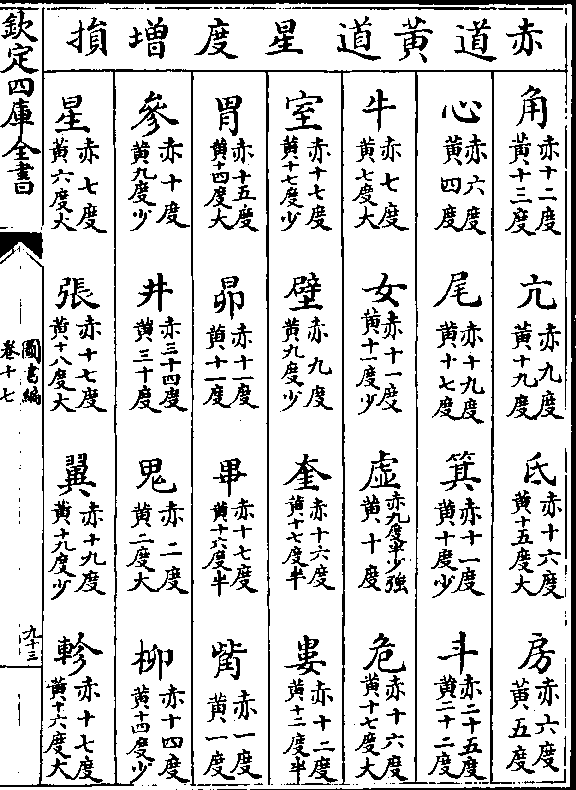 赤道黃道星度增損
角
赤十二度
黃十三度
亢
赤九度
黃十九度
氐
赤十六度
黃十五度大
房
赤六度
黃五度
心
赤六度
黃四度
尾
赤十九度
黃十七度
箕
赤十一度
黃十度少
斗
赤二十五度
黃二十二度
牛
赤七度
黃七度大
女
赤十一度
黃十一度少
虛
赤九度半少強
黃十度
危
赤十六度
黃十七度大
室
赤十七度
黃十七度少
壁
赤九度
黃九度少
奎
赤十六度
黃十七度半
婁
赤十二度
黃十二度半
胃
赤十五度
黃十四度大
昴
赤十一度
黃十一度
畢
赤十七度
黃十六度半
觜
赤一度
黃一度
參
赤十度
黃九度少
井
赤三十四度
黃三十度
鬼
赤二度
黃二度大
柳
赤十四度
黃十四度少
星
赤七度
黃六度大
張
赤十七度
黃十八度大
翼
赤十九度
黃十九度少
軫
赤十七度
黃十六度大
欽定四庫全書
圖書編
卷十七
九十三